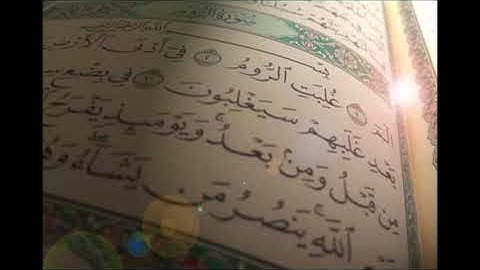 سُورَةُ الرُّومِ
الٓمٓ ١ غُلِبَتِ ٱلرُّومُ ٢ فِىٓ أَدْنَى ٱلْأَرْضِ
بَعْدِ غَلَبِهِمْ سَيَغْلِبُونَ ٣ فِى بِضْعِ
مِن قَبْلُ وَمِنۢ بَعْدُ ۚ وَيَوْمَئِذٍ يَفْرَحُ
ٱللَّهِ ۚ يَنصُرُ مَن يَشَآءُ ۖ وَهُوَ